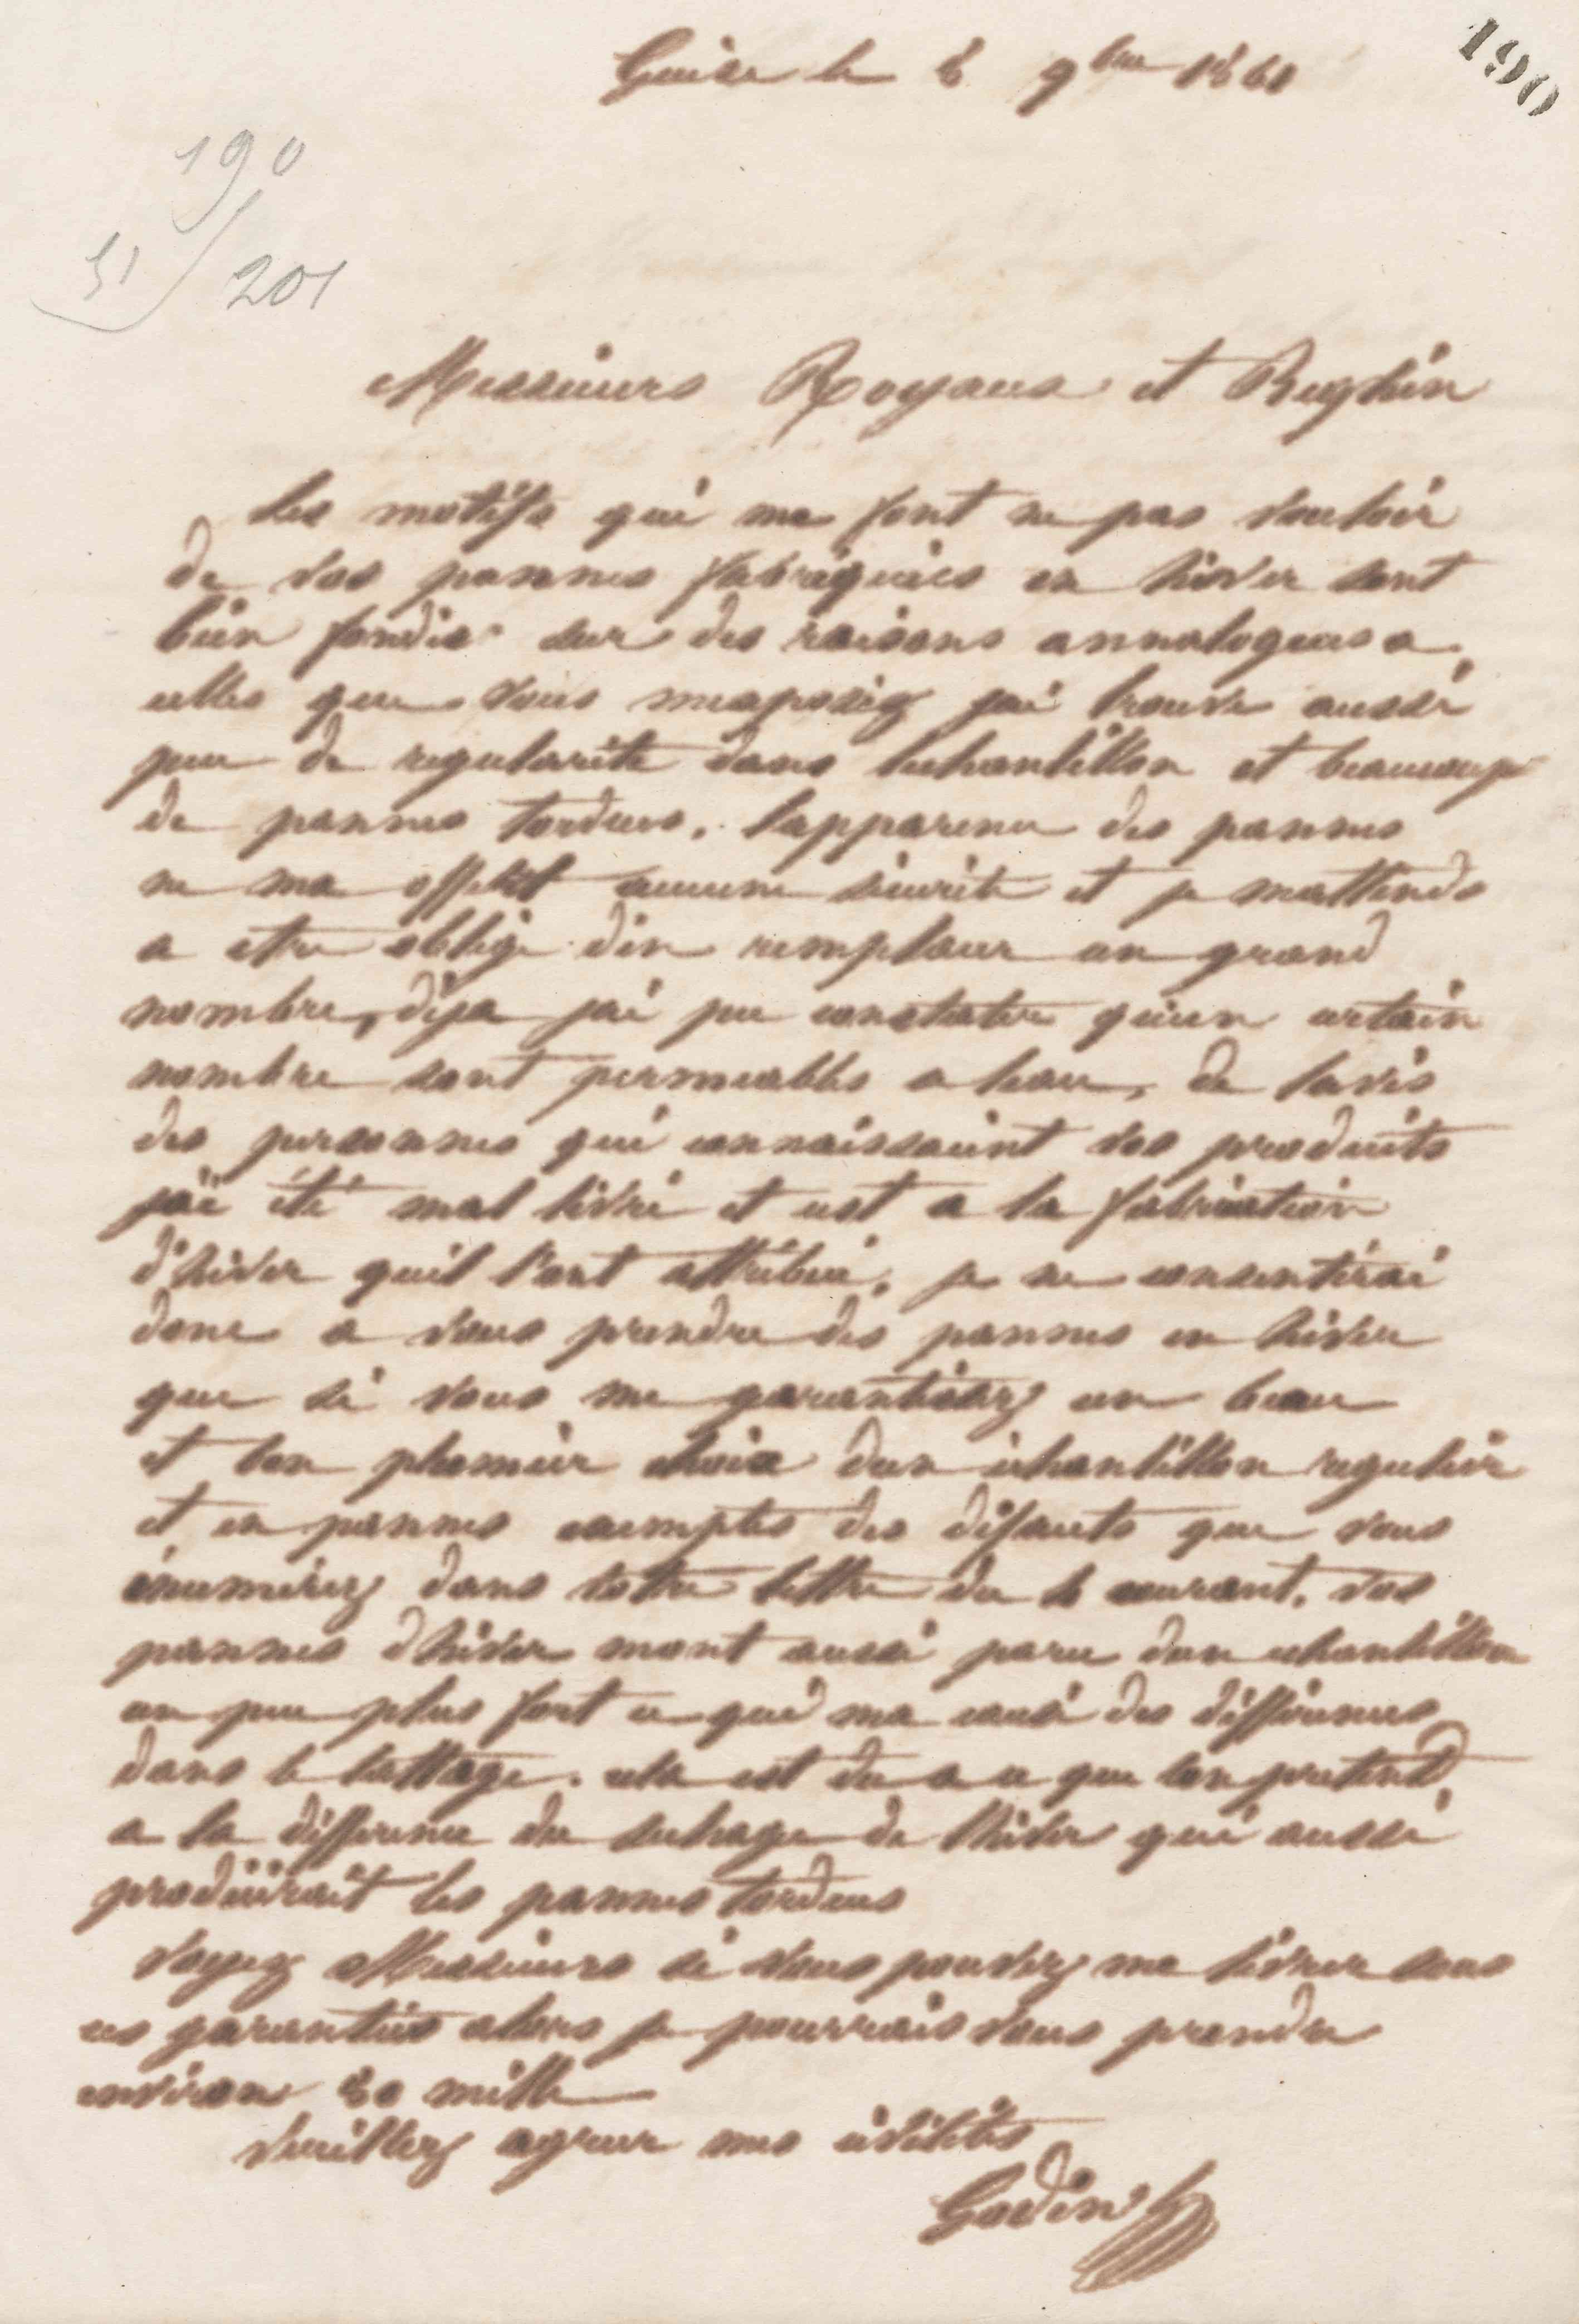 190
Guise le 8 9bre 1861
190
51/201
Messieurs Royaux et Beghin
Les motifs qui me font ne pas vouloir
de vos pannes fabriquées en hiver sont
bien fondés sur des raisons annalogues a
celles que vous mexposez jai trouve aussi
peu de regularité dans lechantillon et beaucoup
de pannes tordues. lapparence des pannes
ne ma offert aucune sécurité et je mattends
a etre obligé den remplacer un grand
nombre, déja jai pu constater quun certain
nombre sont permeables a leau, de lavis
des personnes qui connaissaient vos produits
jai été mal livré et cest a la fabrication
d'hiver quil l'ont attribué. je ne consentirai
donc a vous prendre des pannes en hiver
que si vous me garantissez un beau
et bon premier choix dun échantillon regulier
et en pannes exemptes des défauts que vous
énumérez dans votre lettre du courant. vos
pannes dhiver mont aussi paru dun echantillon
un peu plus fort ce qui ma causé des différences
dans le lattage. cela est du a ce que lon pretend
a la difference du sechage de lhiver qui aussi
produirait les pannes tordues
Voyez Messieurs si vous pouvez me livrer sous
ces garanties alors je pourrais vous prendre
environ mille
Veuillez agreer mes civilités
Godin